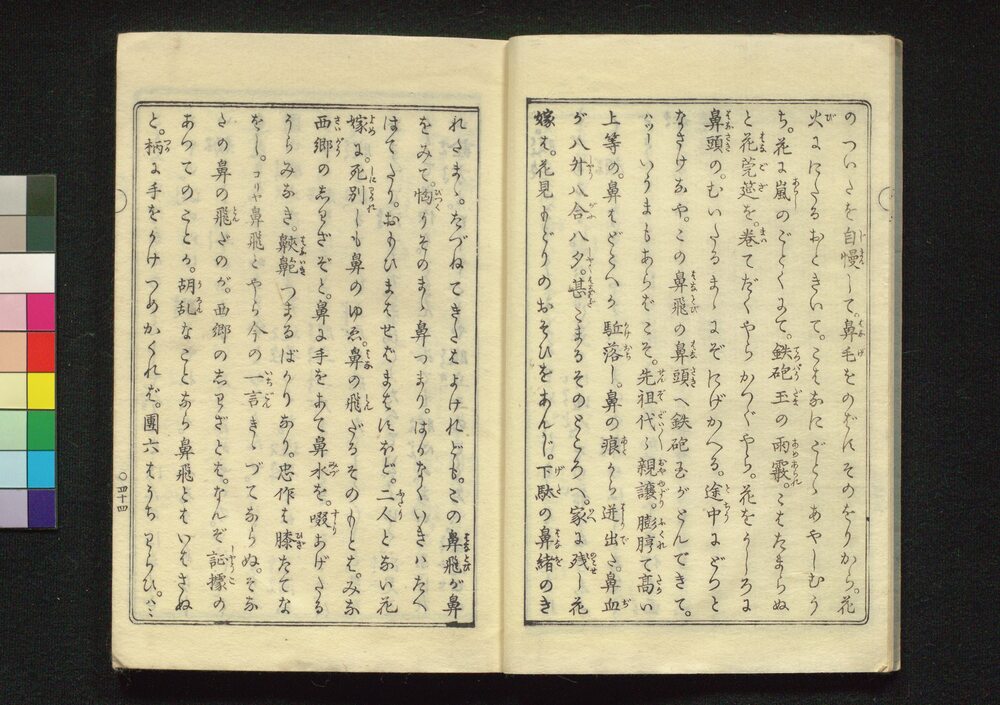 のついたを自慢して。鼻毛をのばすそのをりから。花
火ににたるおときいて。こはなにごとゝあやしむう
ち。花に嵐のごとくにて。鉄砲玉の雨霰。こはたまらぬ
と花莞莚を。巻てだくやらかつぐやら。花をうしろに
鼻頭の。むいたるまゝにぞにげかへる。途中にどつと
なさけなや。この鼻飛の鼻頭へ鉄砲玉がとんできて。
ハツといふまもあらばこそ。先祖代々親譲。膨脝て高い
上等の。鼻はどこへか駈落し。鼻の痕から迸出た。鼻血
が八升八合八夕。甚こまるそのところへ。家に残し花
嫁は。花見もどりのおそひをあんじ。下駄の鼻緒のき
れたまゝ。たづねてきたはよけれども。この鼻飛が鼻
をみて。恟りそのまゝ鼻つまり。はかなくいきはたへ
はてたり。おもひまはせばまはすほど。二人とない花
嫁に。死別しも鼻のゆゑ。鼻の飛だるそのもとは。みな
西郷のしわざぞと。鼻に手をあて鼻水を。啜あげたる
うらみなき。鼾つまるばかりなり。忠作は膝たてな
をし。コリヤ鼻飛とやら今の一言きゝづてならぬ。そな
たの鼻の飛たのが。西郷のしわざとは。なんぞ証拠の
あつてのことか。胡乱なことなら鼻飛とはいはさぬ
と。柄に手をかけつめかくれば。團六はうちわらひ。ハミ
〇四十四